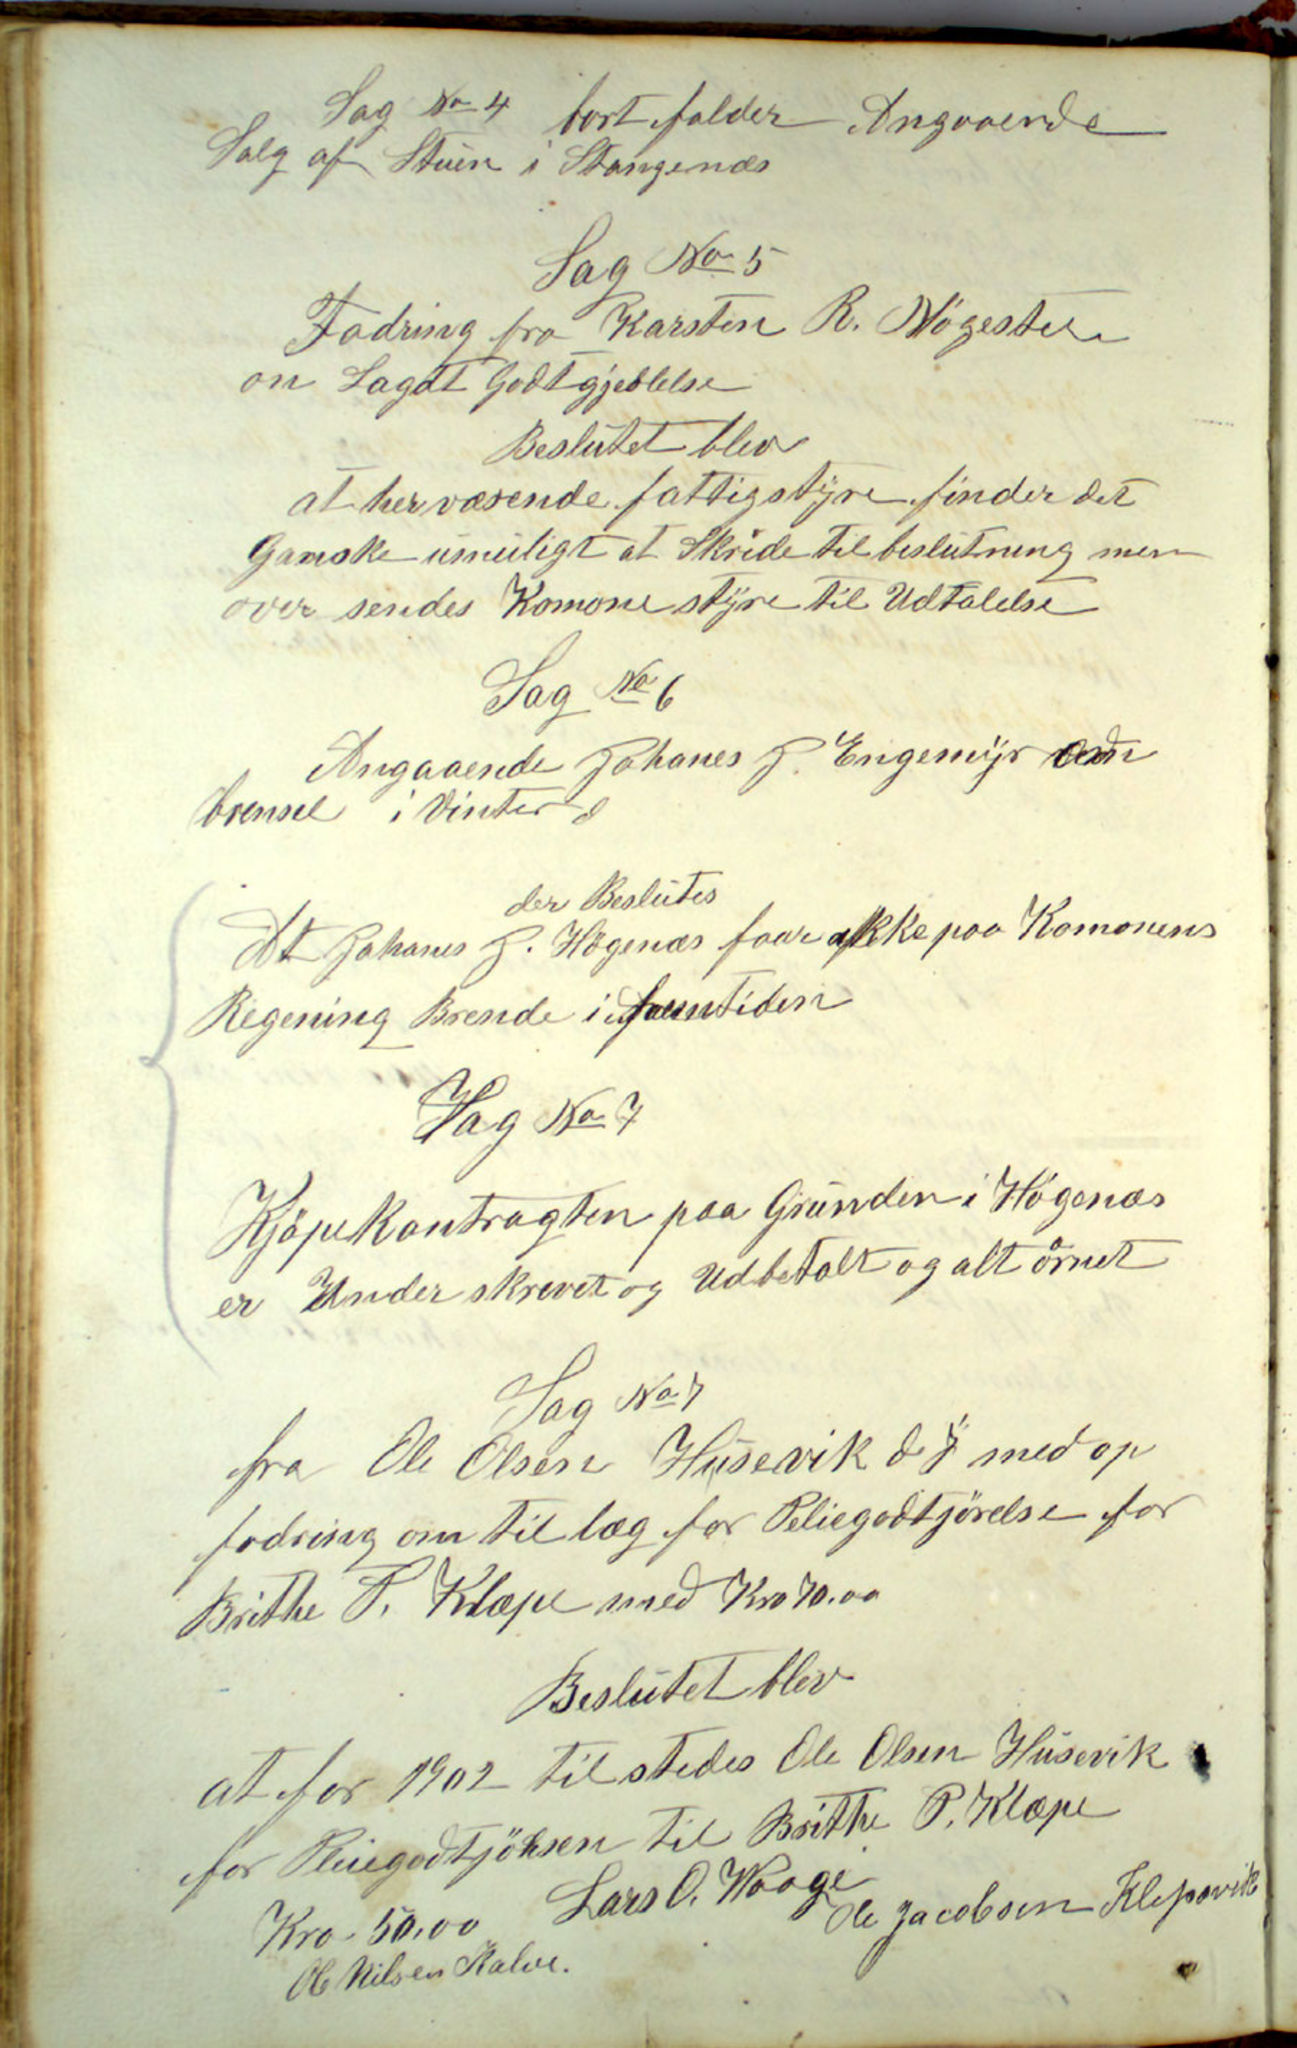 Sag No 4 bort falder Angaaende
Salg af Stuen i Stangenæs
Sag No 5
Fodring fra Karsten R. Nögesten
om Sagat Godtgjeblelse
Beslutet blev
at her værende fattigstyre finder det
Ganske umuligt at Skride til beslutning men
over sendes Komone styre til Udtalelse
Sag No 6
Angaaende Johanes J. Engemyr om
brensel i Vinter
der Beslutes
At Johanes J. Högenæs faar ikke paa Komonens
Regening Brende i fremtiden
Sag No 7
Kjöpekontragten paa Grunden i Högenæs
er Under skrevet og Udbetalt og alt örnet
Sag No 7
fra Ole Olsen Husevik d y med op
fodring om til læg for Peliegodtjörelse for
Brithe P. Klæpe med Kro 70.00
Beslutet blev
at for 1902 til stedes Ole Olsen Husevik
for Pleiegodtjölsen til Brithe P. Klæpe
Kro. 50.00 Lars O. Waage Ole Jacobsen Klepsvik
Ole Nilsen Kalve.